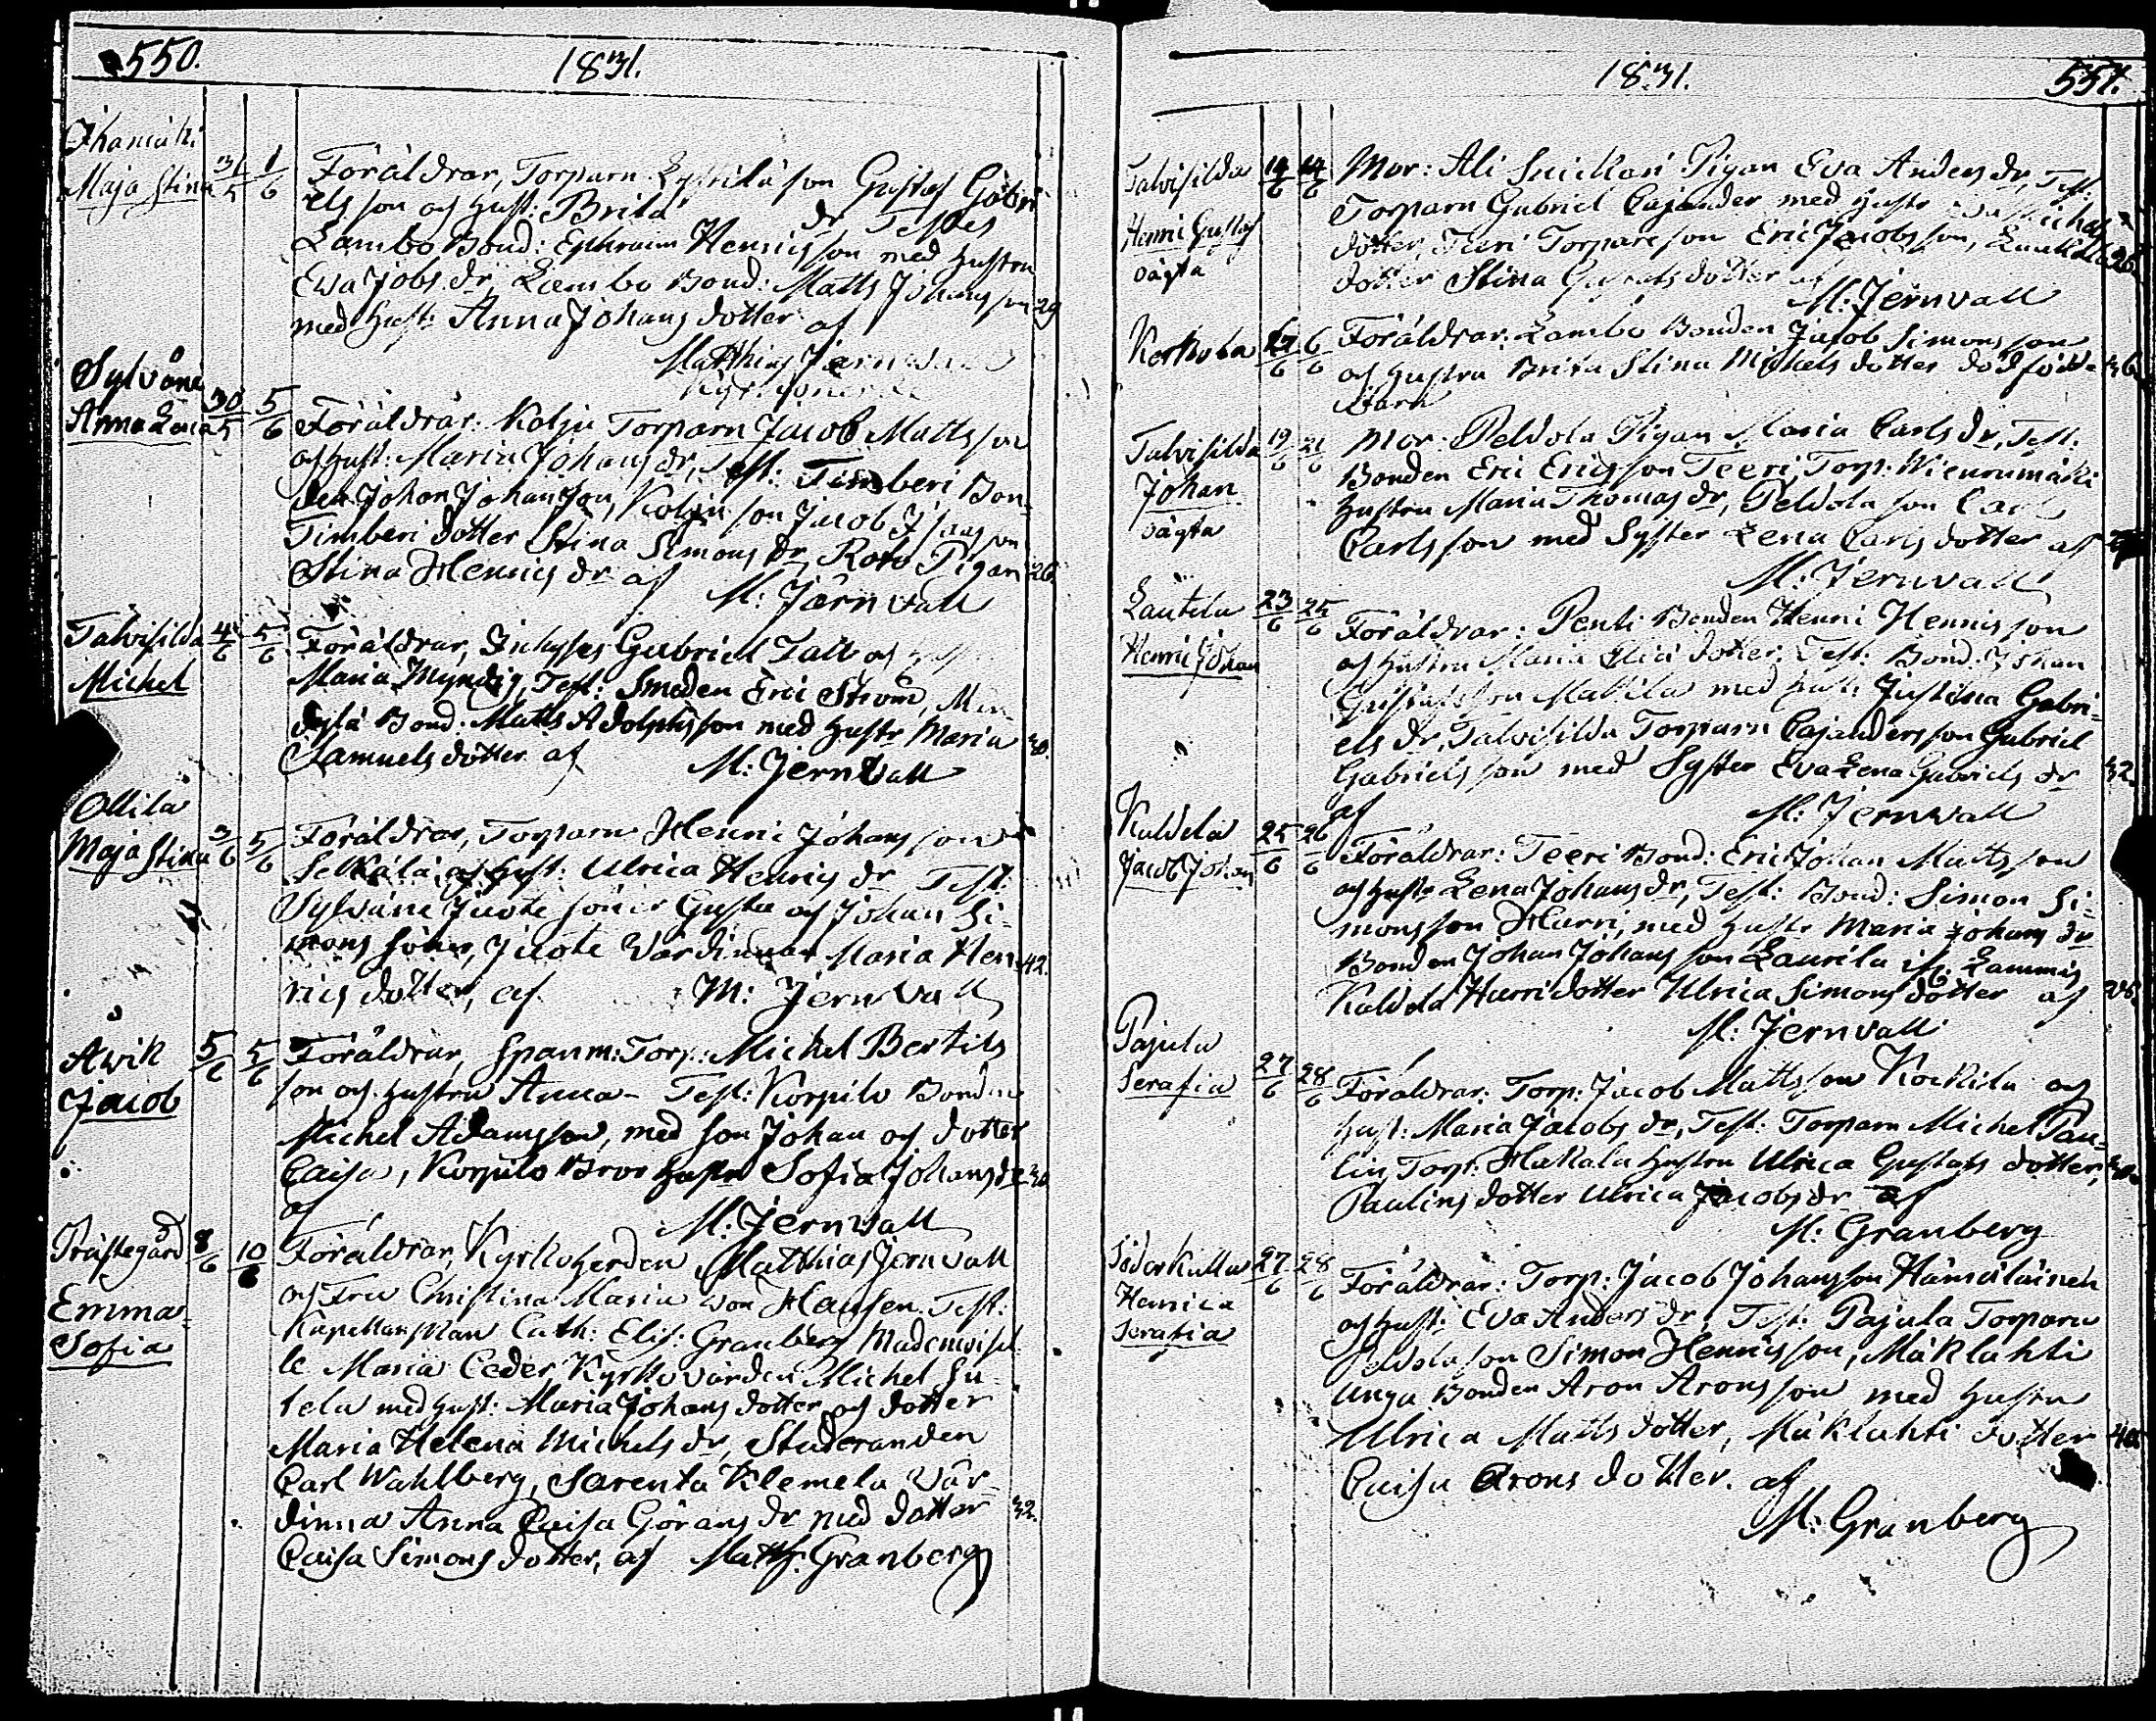 550.
1831.
Maja Stina 31/5 1/6
Föräldrar, Torparn son Gustaf Gabri
els son och hust: Brita dr Testes
Lambo Bond: Ephraim Henricsson med hustru
Eva Jobs dr, Lambo Bond: Matts Johansson 29
med hust: Anna Johans dotter af
Matthias Jernvall
Sylväni
Anna Lena 30/5 5/6
Föräldrar. Kolju Torparn Jacob Mattsson
och hust: Maria Johans dr, Test: Timberi Bon-
den Johan Johansson, Kolju son Jacob Isaksson
Timberi dotter Stina Simons dr, Roto Pigan 26.
Stina Henrics dr af M: Järnvall
Talvisilda 4/6 5/6
Michel
Föräldrar, Gabriel Talb och
Maria Myndig, Test: Smeden Eric Ström, Min
Bond: Matts Adolphsson med hustr Maria 30.
Samuels dotter af M: Jernvall
Ollila
Maja Stina 3/6 5/6
Föräldrar, Torparn Henric Johansson
Selkälä och hust: Ulrica Henrics dr Test:
Sylväni Juote söner Gusta och Johan Si-
mons söner, Juote Värdinnan Maria Hen- 42.
rics dotter, af M: Jernvall
Awik 5/6 5/6
Jacob
Föräldrar, Spanm: Torp: Michel Bertils
son och hustru Anna - Test: Korpilo Bonden
Michel Adamsson, med son Johan och dotter
Caisa, Korpilo Bror hustru Sofia Johans dr 30.
af M: Jernvall
Prästegård 8/6 10/6
Emma
Sofia
Föräldrar, Kyrkoherden Matthias Jernvall
och Fru Christina Maria von Hausen. Test:
Kapellanskan Cath: Elis: Granberg Mademoisel
le Maria Ceder, Kyrkovärden Michel Su-
tela med hust: Maria Johans dotter och dotter
Maria Helena Michels dr, Studeranden
Carl Wahlberg, Sarenta Klemela Vär-
dinna Anna Caisa Görans dr med dotter 32.
Caisa Simons dotter, af Matth: Granberg
1831.
551.
Talvisilda 14/6 14/6
Henric Gustaf
oägta
Mor: Ali Snickari Pigan Eva Anders dr, Test:
Torparn Gabriel Cajander med hustr
dotter, Teeri Torpare son Eric Jacobsson, 26.
dotter Stina dotter af
M: Jernvall
Korkola
Föräldrar: Lambo Bonden Jacob Simons son
och hustru Brita Stina Michels dotter dödfödde 36.
Barn
Talvisilda 19/6 21/6
Johan
oägta
Mor: Peldola Pigan Maria Carls dr, Test:
Bonden Eric Ericsson Teeri, Torp:
hustru Maria Thomas dr, Peldola son Carl
Carlsson med Syster Lena Carls dotter af
M: Jernvall
Lautila 23/6 25/6
Henric Johan
Föräldrar: Penti Bonden Henric Henricsson
och hustru Maria dotter. Test: Bond: Johan
Gustafsson Mattila med hust: Justina Gabri-
els dr, Talvisilda Torparn Cajanders son Gabriel
Gabrielsson med Syster Eva Lena Gabriels dr 32.
af M: Jernvall
Kuldela 25/6 26/6
Jacob Johan
Föräldrar: Teeri Bond: Eric Johan Mattsson
och hustr Lena Johans dr, Test: Bond: Simon Si-
monsson Hurri, med hustr Maria Johans dr
Bonden Johan Johansson Laurila i Lammis
Kuldela Hurri dotter Ulrica Simons dotter af 28.
M: Jernvall
Pajula
Serafia 27/6 28/6
Föräldrar: Torp: Jacob Mattsson Kockila och
hust: Maria Jacobs dr, Test: Torparn Michel Pau-
lin, Torp: Hakala hustru Ulrica Gustafs dotter,
Paulins dotter Ulrica Jacobs dr af
M: Granberg
Söderkulla 27/6 28/6
Henrica
Serafia
Föräldrar: Torp: Jacob Johansson Hämäläinen
och hust: Eva Anders dr, Test: Pajula Torparn
Peldola son Simon Henricsson, Mäklahti
unga Bonden Aron Aronsson med hustru
Ulrica Matts dotter, Mäklahti dotter 40.
Caisa Arons dotter. af
M: Granberg